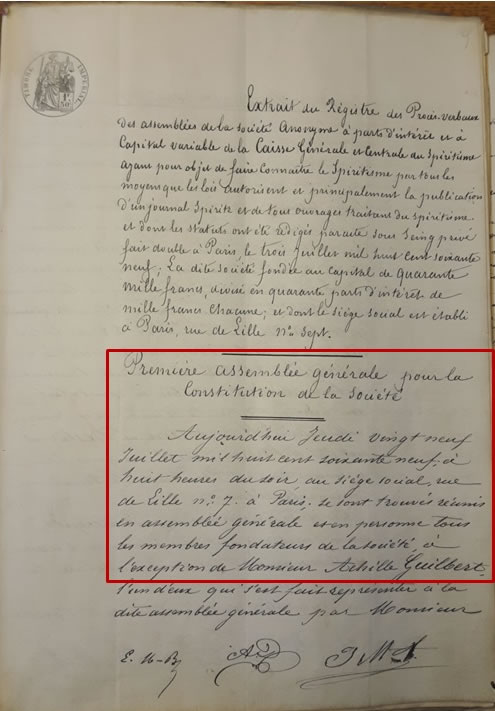 TIMBRE IMPERIAL
1F
50c
Extrait du Régistre des Procès-verbaux
des assemblées de la société Anonyme à parts d'intérêt et à
Capital variable de la Caisse Générale et Centrale du Spiritisme
ayant pour objet de faire Connaître le Spiritisme par tous les
moyens que les lois autorisent et principalement la publication
d'un journal Spirite et de tous ouvrages traitant du spiritisme
et dont les statuts ont été rédigés par acte sous Seing privé
fait double à Paris, le trois juillet mil huit cent soixante
neuf; La dite société fondée au capital de quarante
mille francs, divisé en quarante parts d'intérêt de
mille francs chacune; et dont le siège social est établi
à Paris, rue de Lille No. Sept.
Première assemblée générale pour la
Constitution de la Société
Aujourd'hui Jeudi vingt neuf
Juillet mil huit cent soixante neuf à
huit heures du soir, au siège social, rue
de Lille no. 7. à Paris. se sont trouvés réunis
en assemblée générale et en personne tous
les membres fondateurs de la société, à
l'exception de Monsieur Achille Guilbert.
l'un d'eux qui s'est fait représenter à la
dite assemblée générale par Monsieur